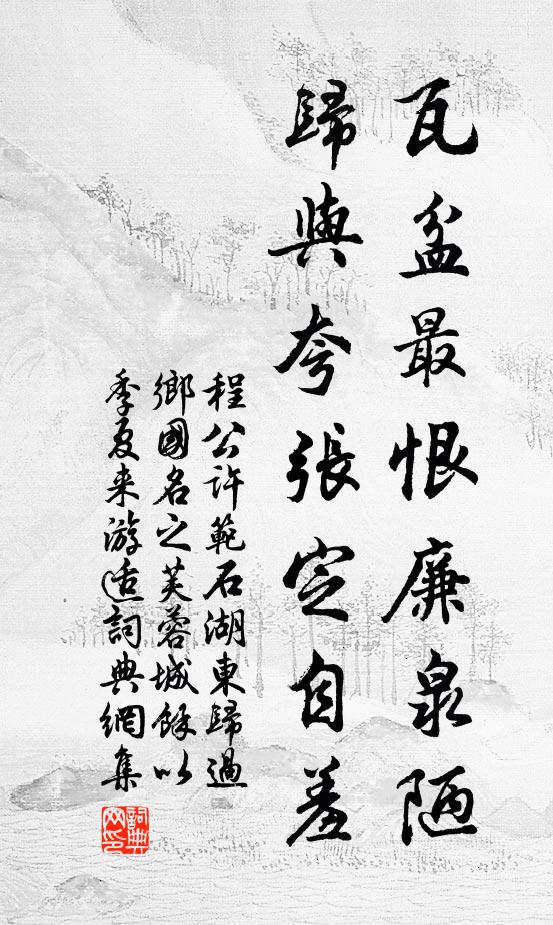 瓦盆最恨廉泉陋
歸與夸張定自羞
程公許範石湖東歸過
鄉國名之芙蓉城餘以
季夏来游适詞典網集
詞典網印